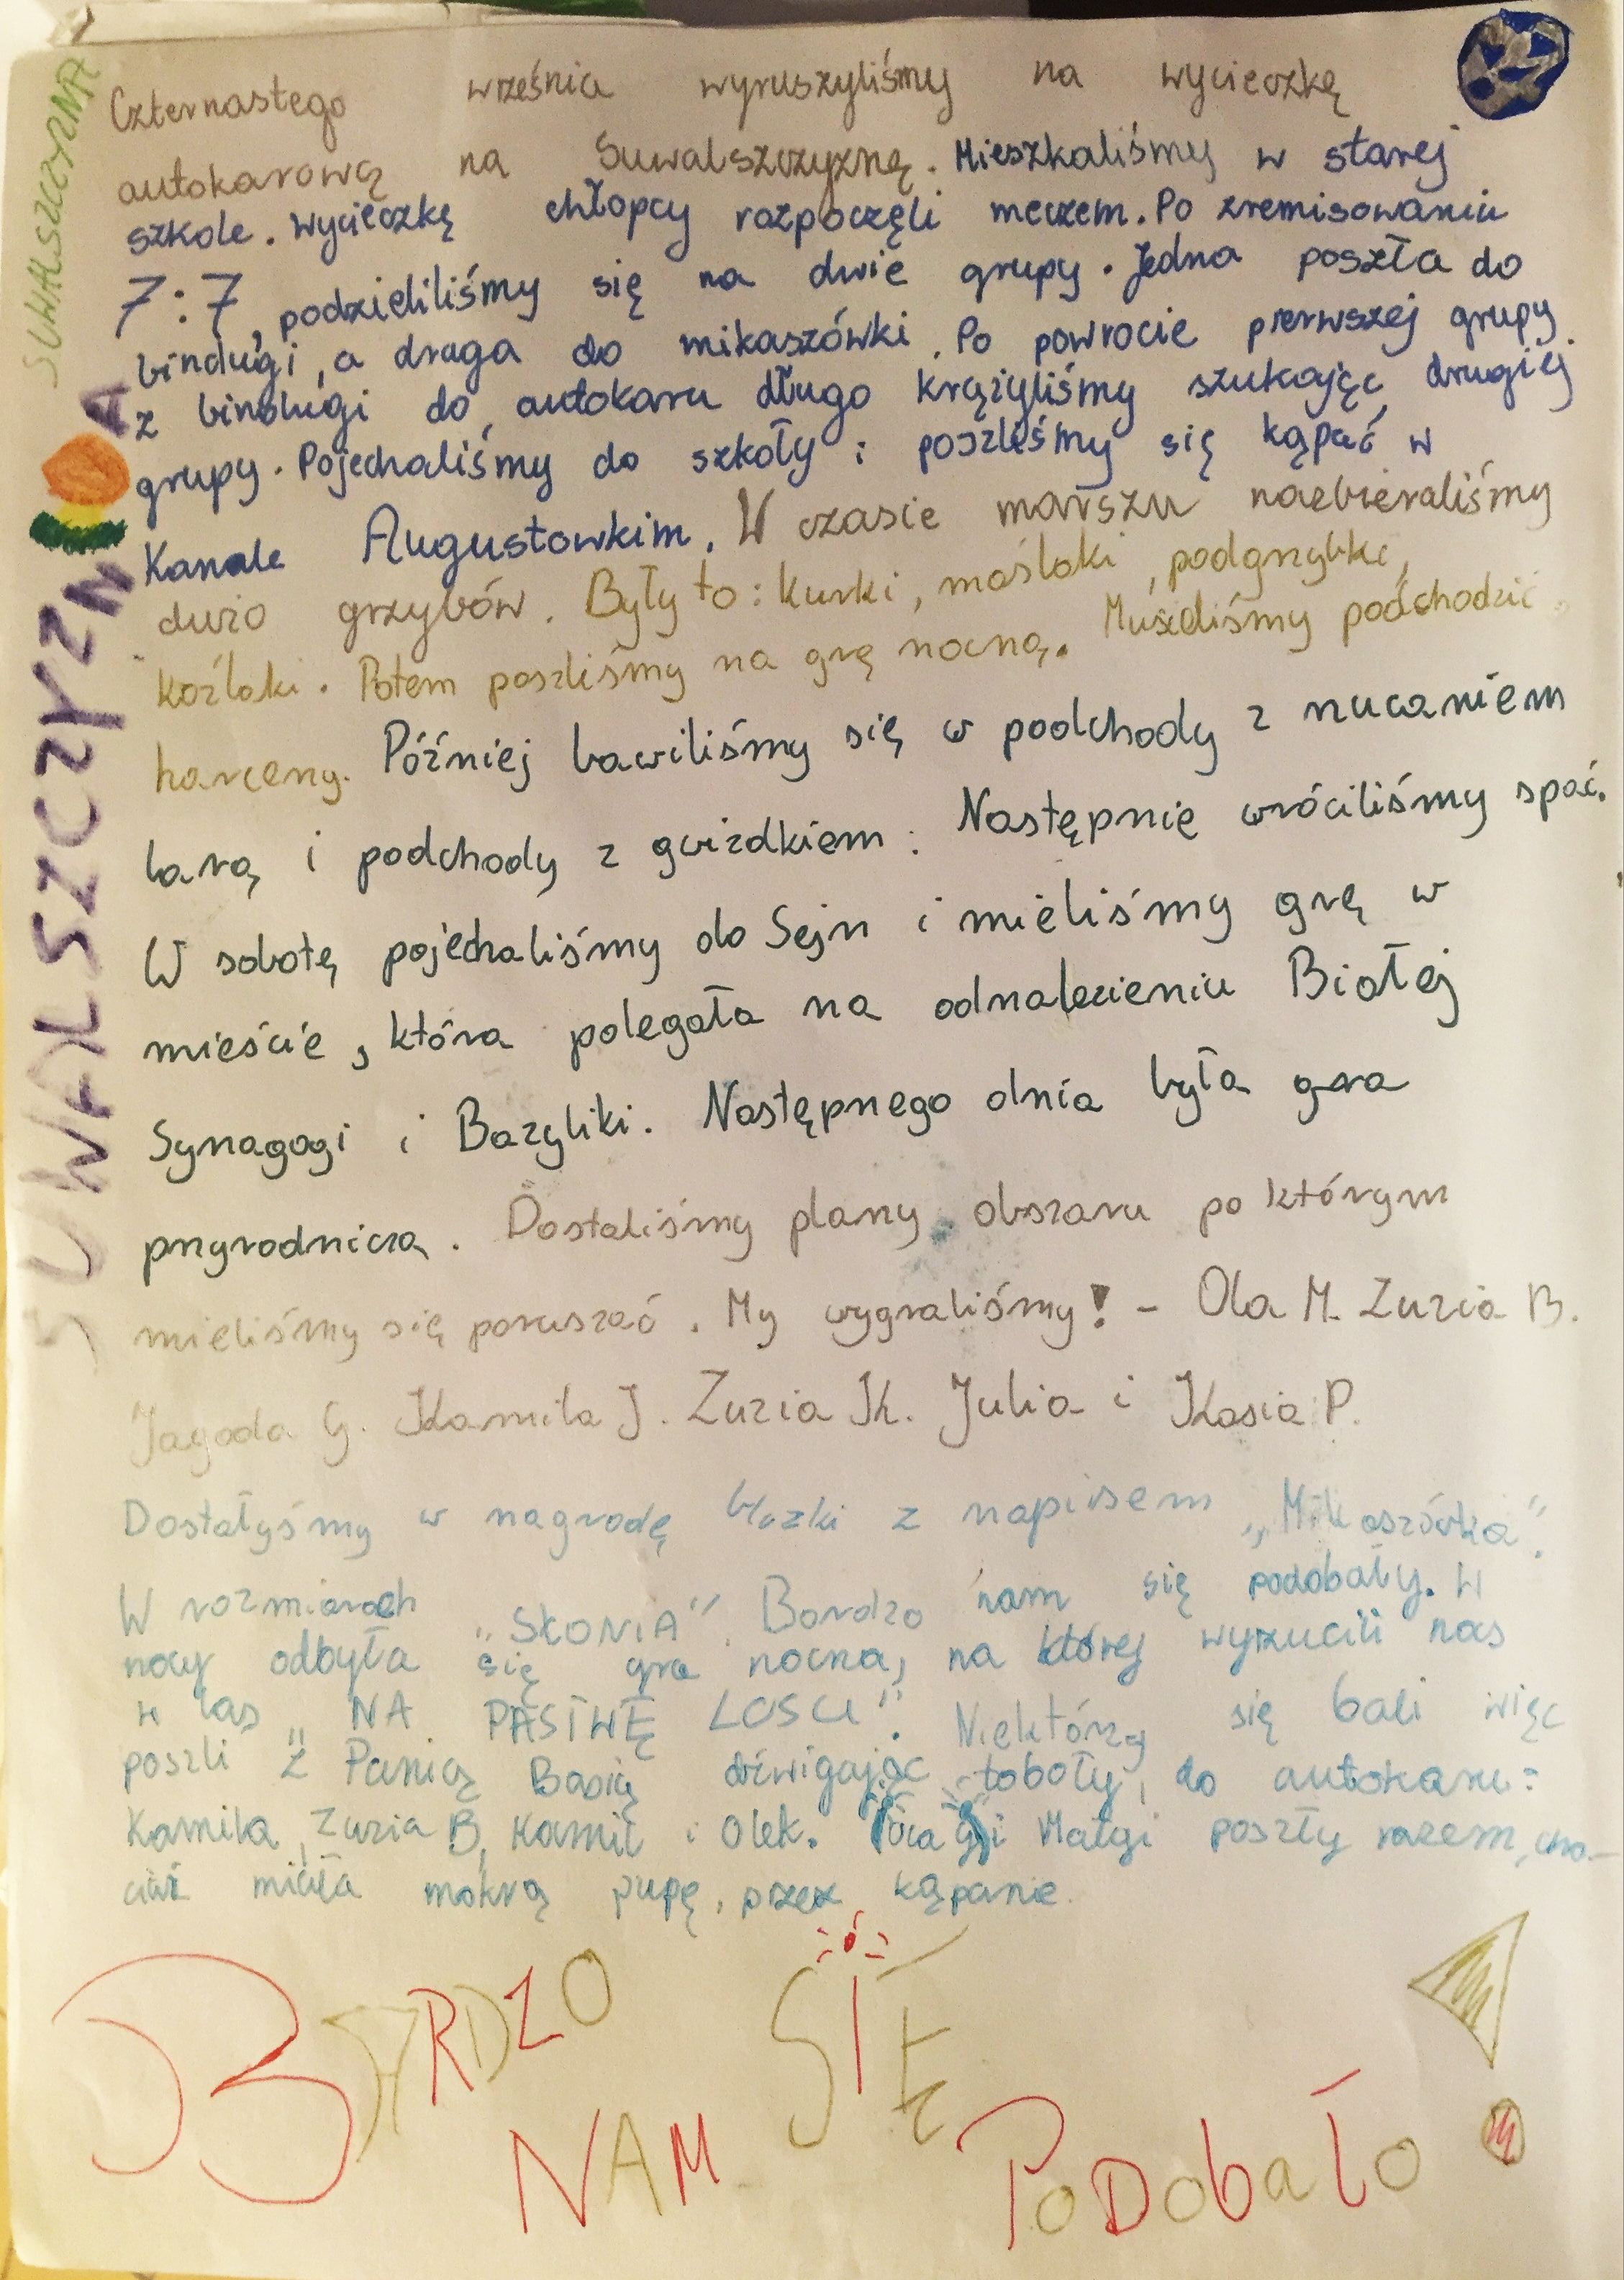 SUWALSZCZYZNA
SUWALSZCZYZNA
Czternastego września wyruszyliśmy na wycieczkę
autokarową na Suwalszczyznę. Mieszkaliśmy w starej
szkole. Wycieczkę chłopcy rozpoczęli meczem. Po zremisowaniu
7:7, podzieliliśmy się na dwie grupy. Jedna poszła do
bindugi, a druga do mikaszówki. Po powrocie pierwszej grupy
z bindugi do autokaru długo krążyliśmy szukając drugiej
grupy. Pojechaliśmy do szkoły i poszliśmy się kąpać w
Kanale Augustowkim. W czasie marszu nazbieraliśmy
dużo grzybów. Były to: kurki, maślaki, podgrzybki,
koźlaki. Potem poszliśmy na grę nocną. Musieliśmy podchodzić
harcerzy. Później bawiliśmy się w podchody z rzucaniem
larą i podchody z gwizdkiem. Następnie wróciliśmy spać.
W sobotę pojechaliśmy do Sejn i mieliśmy grę w
mieście, która polegała na odnalezieniu Białej
Synagogi i Bazyliki. Następnego dnia była gra
przyrodnicza. Dostaliśmy plany obszaru po którym
mieliśmy się poruszać. My wygraliśmy! - Ola M. Zuzia B.
Jagoda G. Kamila J. Zuzia K. Julia i Kasia P.
Dostałyśmy w nagrodę bluzki z napisem „Mikaszówka".
W rozmiarach „SŁONIA". Bardzo nam się podobały. W
nocy odbyła się gra nocna, na której wyrzucili nas
w las „NA PASTWĘ LOSU". Niektórzy się bali więc
poszli z Panią Basią dźwigając toboły, do autokaru:
Kamila, Zuzia B, Kamil i Olek. i Małgi poszły razem, cho-
ciaż miała mokrą pupę, przez kąpanie.
BARDZO
NAM SIĘ PODOBAŁO!